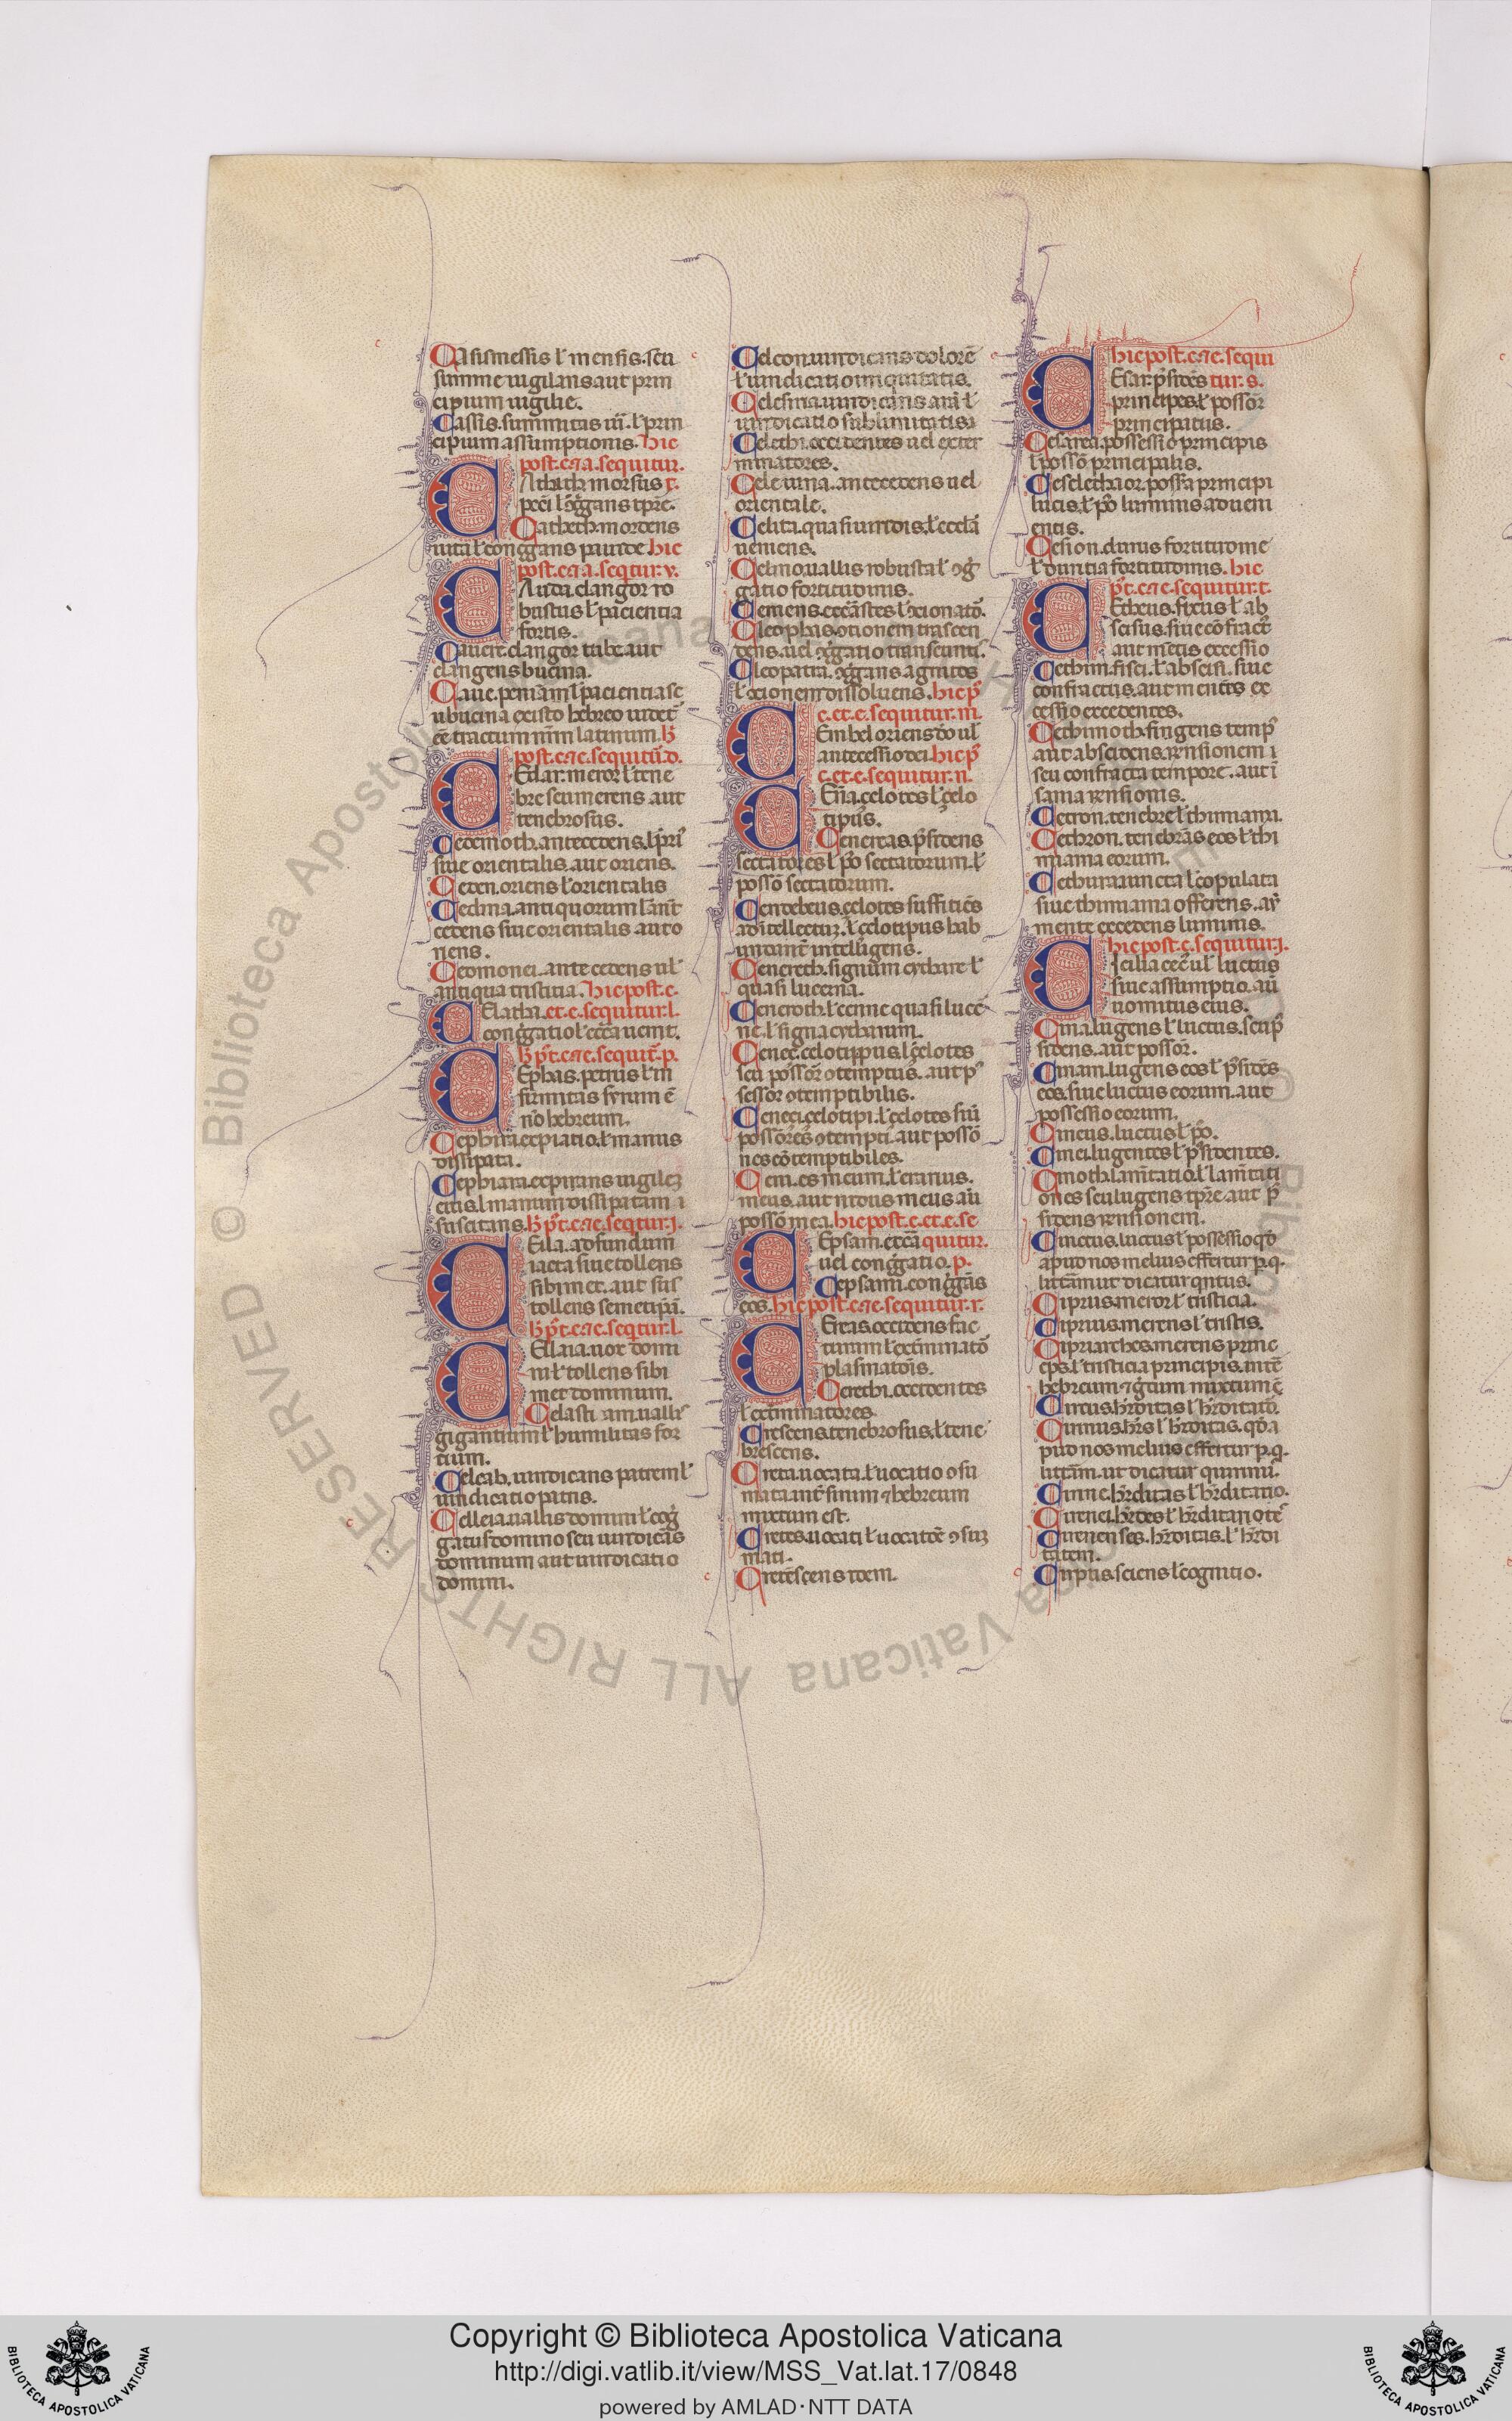 Casis messis l' mensis. seu
summe uigilans aut prin
cipium uigilie.
Cassis. summitas l' prin
cipium assumptionis. hic
post. c. et a. sequitur.
Athath morsus t.
Cathath mordens
uita l' congregans pauide. hic
post. c. et a. seqitur. v.
Auda. clangor ro
bustus l' paciencia
fortis.
Caueit. clangor tube aut
clangens bucina.
ubucina existo hebreo uidet'
ee tractum nīm latinum. h'
post. c. et e. sequitū. d.
Edar. meror l' tene
bre seu merens aut
tenebrosus.
Cedemoth. antecedens. l' pri'
siue orientalis. aut oriens.
Ceden. oriens l' orientalis
Cedma. antiquorum l' ant̄
cedens siue orientalis auto
riens.
Cedmonei. ante cedens ul'
antiqua tristitia. hic post. c.
Elatha. et. e. sequitur. l.
congregatio l' ecc̄a uenit.
h' p̄t. c. et e. sequit'. p.
Ephas. petrus l' in
firmitas syrum ē
nō hebreum.
Cephira expiatio. l' manus
dissipata.
Cephiara. expirans uigilez
eius. l' manum dissipatam
suscitans. h' p̄t. c. et e. seqtur. j.
Eila. ad fundum
iacta siue tollens
sibimet. aut suis
tollens semetipm̄.
h' p̄t. c. et e. seqtur. l.
Elaia. uox domi
ni l' tollens sibi
met dominum.
Celasti am. uallis
gigantium l' humilitas for
tium.
Celeab. uindicans patrem l'
uindicatio patris.
Celleia. uallis domini l' cog̑
gatus domino seu uindicās
dominum aut uindicatio
domini.
Celcon. uindicans dolorē
l' uindicatio iniquitatis.
Celesiria. uindicans
uindicatio sublimitatis
Celethi. occidentes uel exter
minatores.
Cele una. antecedens uel
orientale.
Celita. quasi uiridis. l' eccl'a
ueniens.
Celmo. uallis robusta l' og̑
gatio fortitudinis.
Cleophas. otionem trascen
dens. uel og̑gatio transeunt̄.
Cleopatra. og̑gans agnitos
l' oxionem dissoluens. hic p̄
c. et. e. sequitur. m.
Embel oriens dō ul'
antecessio dei. hic p̄
c. et. e. sequitur. n.
Eīia. çelotes l' çelo
tipus.
Cenereas. p̄sidens
sectatores l' p̄o sectatorum. l'
possō sectatorum.
Cendebeus. çelotes sufficiēs
ad intellectuz. l' çelotipus hab
undant̄ intelligens.
Cenereth. signum cythare l'
quasi lucerna.
Ceneroth. l' cenne quasi lucē
ne. l' signa cytharum.
Cenec. celotippus. l' çelotes
seu possor̄ otemptus. aut p̄
sessor otemptibilis.
Cenecei. çelotipi. l' çelotes siū
possores otempti. aut possō
nes cōtemptibiles.
meus. aut nidus meus aū
possō mea. hic post. c. et. e. se
Epsam. eccā quitur.
uel congregatio. p.
Cepsami. congregās
eos. hic post. c. et e. sequitur. r.
Eras. occidens fac
turam l' exterminatō
plasmatōis.
Cerethi. occidentes
l' exterminatores.
Crescens. tenebrosus. l' tene
brescens.
Creta. uocata. l' uocatio osū
mata int̄ sirum et hebreum
mixtum est.
Cretes. uocati l' uocatōe osūz
mati.
Cretēscens idem.
hic post. c. et e. sequi
Esar. p̄sidēs tur. s.
principes. l' possor̄
principatus.
Cesarea. possessio principis
l' possō principalis.
Ceselethaor. possa principi
lucis. l' p̄o luminis adueni
entis.
Cesion. durus fortitudine
l' duritia fortitudinis. hic
p̄t. c. et e. sequitur. t.
Etheus. fixus l' ab
scisus. siue cōfract'
aut mētis excessio
Cethim. fisci. l' abscisi. siue
confractus. aut mentis ex
cessio excedentes.
Cethimoth. fingens temp̄
aut abscidens. rensionem i
seu confracta tempore. aut i
sania rensionis.
Cetron. tenebre l' thimiama.
Cethron. tenebras eos l' thi
miama eorum.
Cethura. iuncta l' copulata
siue thimiama offerens.
mente excedens luminis.
hic post. c. sequitur. j.
Icilia cec' ul' luctus
siue assumptio. aū
uomitus eius.
Cina. lugens l' luctus. seu p̄
sidens. aut possor̄.
Cinam. lugens eos l' p̄sidēs
eos. siue luctus eorum. aut
possessio eorum.
Cineus. luctus l' p̄o.
Cinei. lugentes l' p̄sidentes.
Cinoth. lam̄tatio l' lam̄tati
ones seu lugens tp̄re aut p̄
sidens rensionem.
Cinctus. luctus l' possessio qd̄
apud nos melius effertur p. q.
litt̄am ut dicatur qntus.
Ciprus. meror l' tristicia.
Ciprius. merens l' tristis.
Cipriarches. merens princ
eps. l' tristicia principis. int̄
hebreum et grecum mixtum ē
Cirtus. h'ditas l' h'ditatō.
Cirinus. h's l' h'ditas. qd̄ a
pud nos melius effertur p. q.
litt̄am. ut dicatur quirinu'.
Cirine. h'ditas l' h'ditatio.
Cirenenses. h'ditas. l' h'di
tatem.
Ciriptis. sciens l' cognitio.
Copyright © Biblioteca Apostolica Vaticana
http://digi.vatlib.it/view/MSS_Vat.lat.17/0848
powered by AMLAD·NTT DATA
BIBLIOTECA APOSTOLICA VATICANA
BIBLIOTECA APOSTOLICA VATICANA